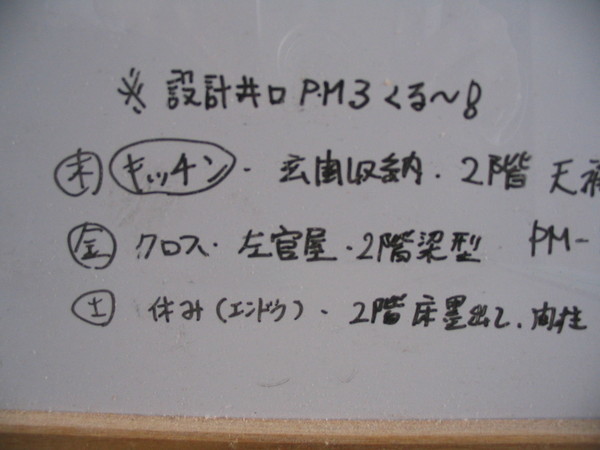 ※ 設計井口 P.M3 くる〜8
木 キッチン・玄関収納・2階 天
金 クロス・左官屋・2階梁型 PM-
土 休み(エンドウ)・2階床墨出し、間柱